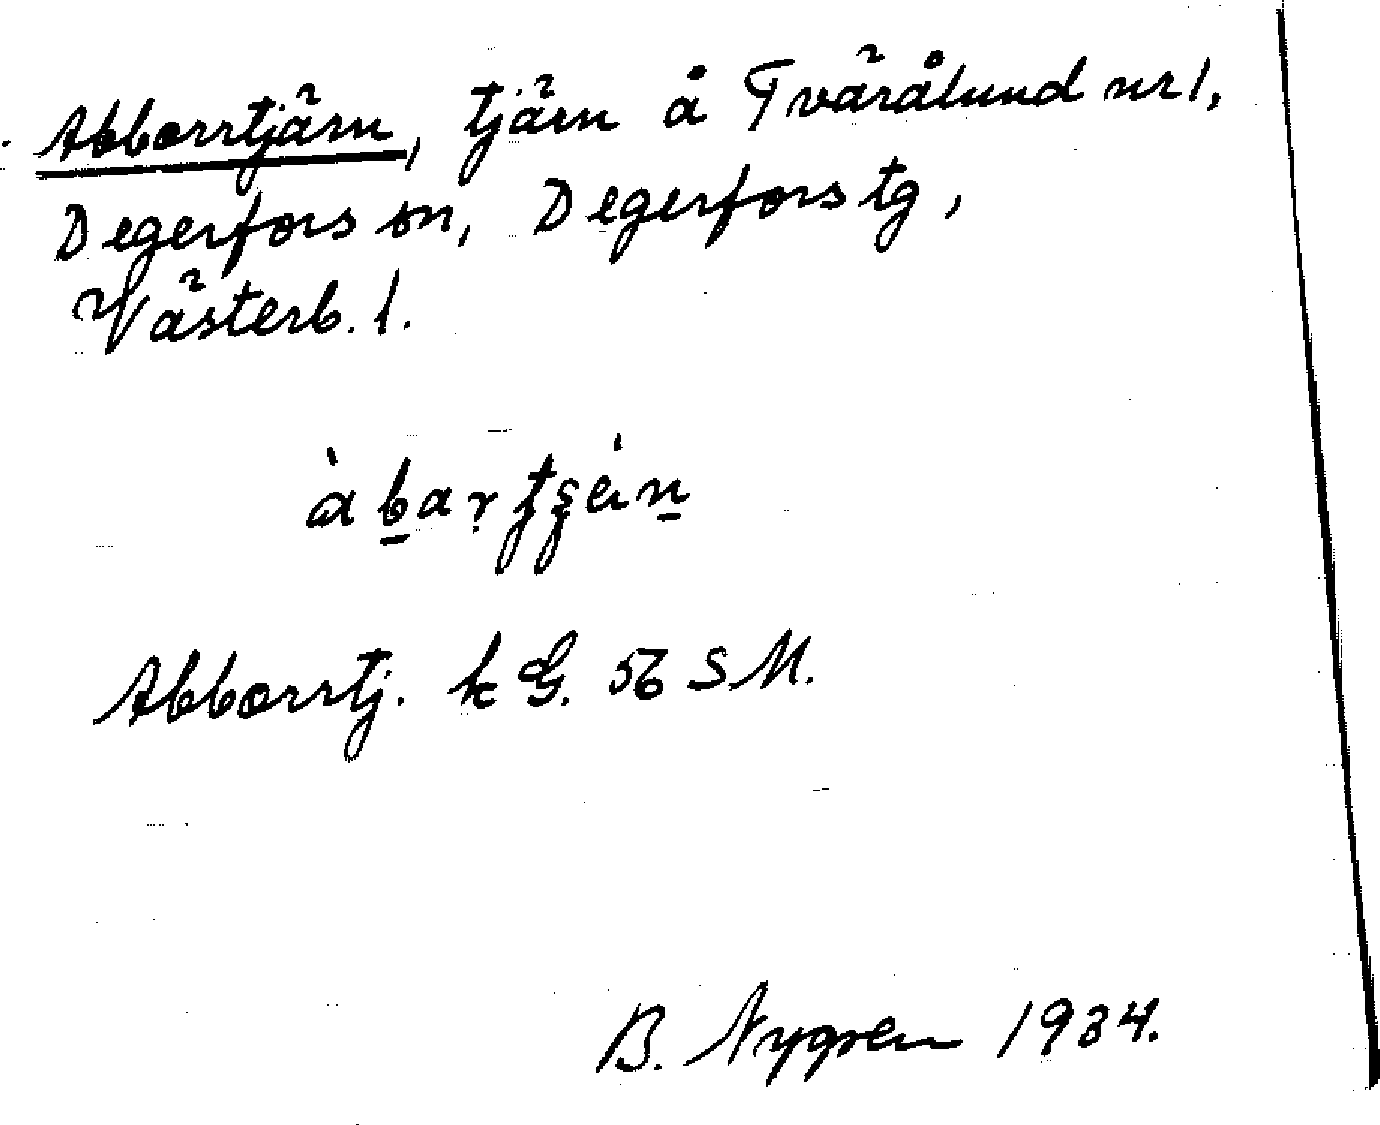 Abborrtjärn, tjärn å Tvärålund nr 1,
Degerfors sn, Degerfors tg,
Västerb. l.
Abborrtj. k G. 56 SM.
B. Nygren 1934.